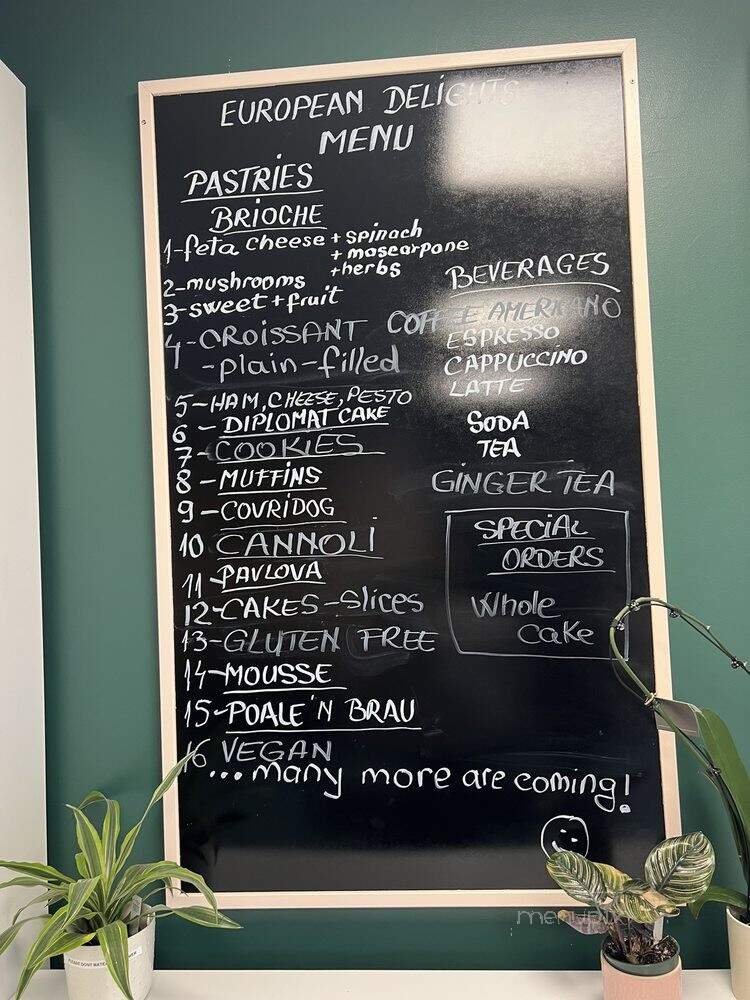 EUROPEAN DELIGHTS
MENU
PASTRIES
BRIOCHE
1-feta cheese + spinach
+ mascarpone
+herbs
2-mushrooms
3-sweet+fruit
4-CROISSANT
-plain-filled
5-HAM, CHEESE, PESTO
6-DIPLOMAT CAKE
7-COOKIES
8-MUFFINS
9-COVRIDOG
10 CANNOLI
11-PAVLOVA
12-CAKES-Slices
13-GLUTEN FREE
14-MOUSSE
15-POALE'N BRAU
16 VEGAN
...many more are coming!
BEVERAGES
COFFEE AMERICANO
ESPRESSO
CAPPUCCINO
LATTE
SODA
TEA
GINGER TEA
SPECIAL
ORDERS
Whole
cake